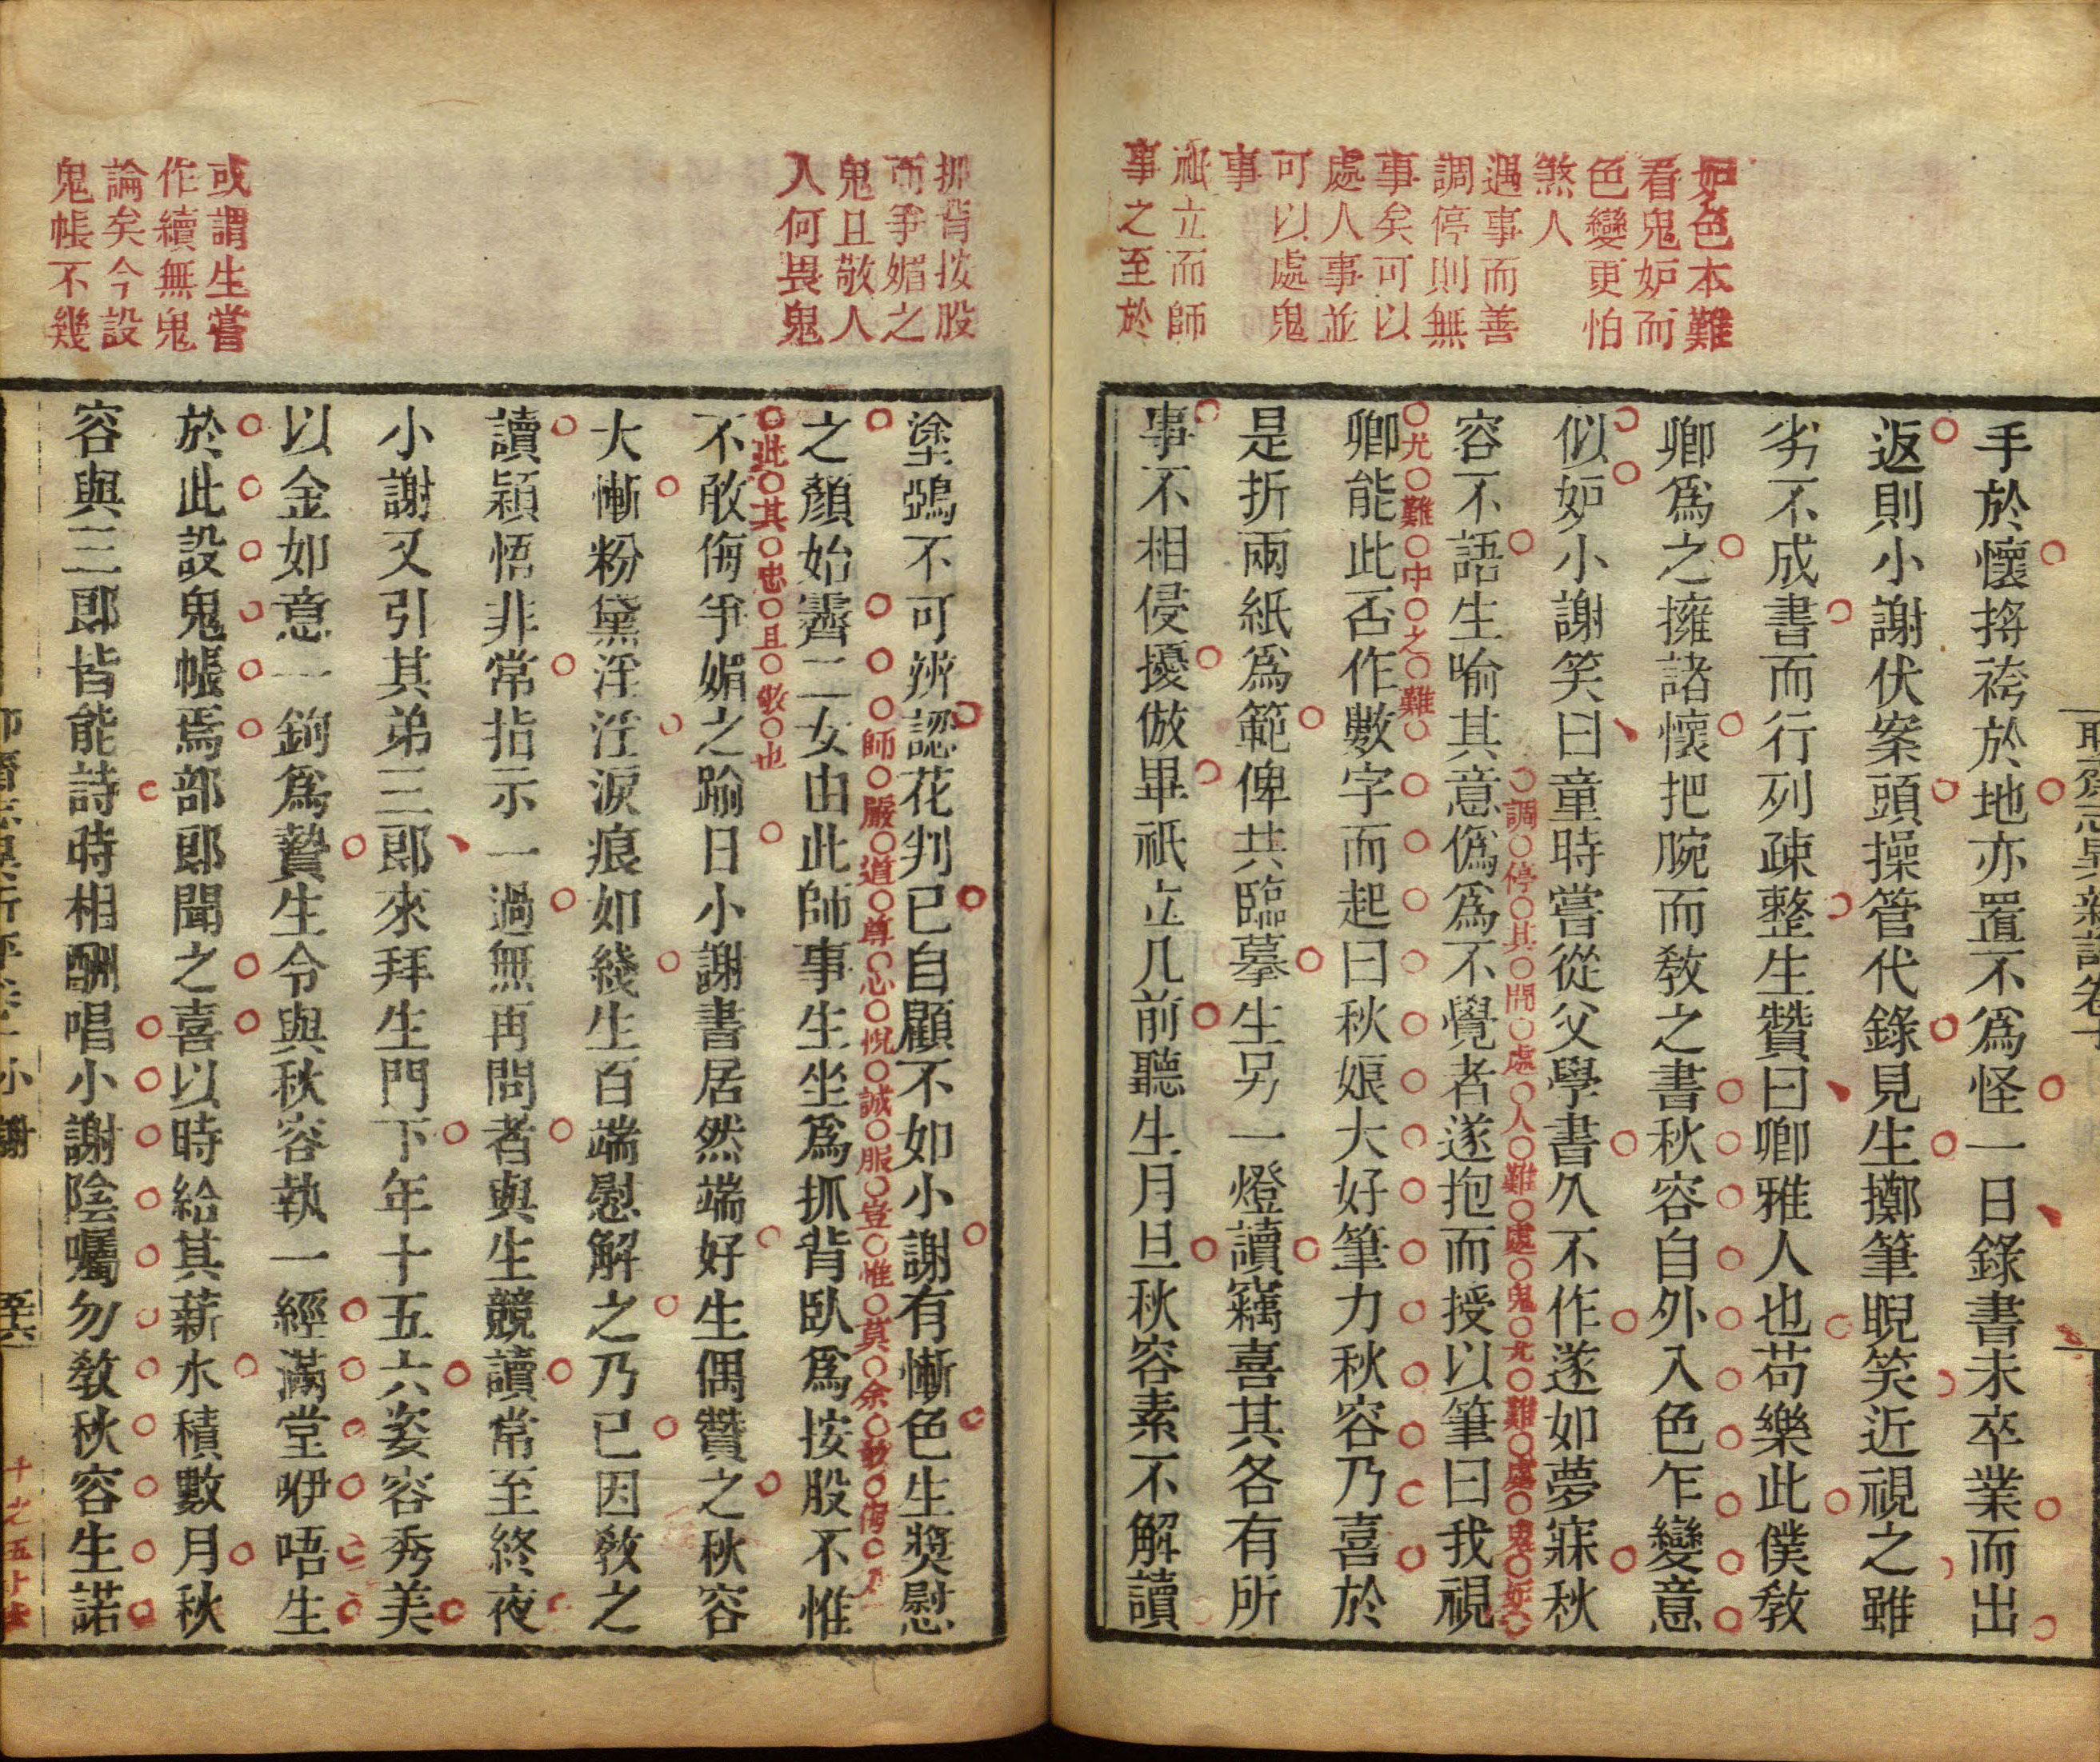 妬色本難
看鬼妬而
色變更怕
煞人
遇事而善
調停則無
事矣可以
處人事並
可以處鬼
事
祗立而師
事之至於
手於懷捋袴於地亦置不爲怪一日錄書未卒業而出
返則小謝伏案頭操管代錄見生擲筆睨笑近視之雖
劣不成書而行列疎整生贊曰卿雅人也苟樂此僕教
卿爲之擁諸懷把腕而教之書秋容自外入色乍變意
似妒小謝笑曰童時嘗從父學書久不作遂如夢寐秋
容不語生喻其意僞爲不覺者遂抱而授以筆曰我視
調停其間處人難處鬼尤難處鬼妬
卿能此否作數字而起曰秋娘大好筆力秋容乃喜於
尤難中之難
是折兩紙爲範俾共臨摹生另一燈讀竊喜其各有所
事不相侵擾倣畢祗立几前聽生月旦秋容素不解讀
抓背按股
而爭媚之
鬼且敬人
人何畏鬼
或謂生嘗
作續無鬼
論矣今設
鬼帳不幾
塗鴉不可辨認花判已自顧不如小謝有慚色生奬慰
之顏始霽二女由此師事生坐爲抓背臥爲按股不惟
師嚴道尊心悅誠服豈惟莫余敢侮
不敢侮爭媚之踰日小謝書居然端好生偶贊之秋容
此其忠且敬也
大慚粉黛淫淫淚痕如綫生百端慰解之乃已因敎之
讀穎悟非常指示一過無再問者與生競讀常至終夜
小謝又引其弟三郎來拜生門下年十五六姿容秀美
以金如意一鉤爲贄生令與秋容執一經滿堂咿唔生
於此設鬼帳焉部郎聞之喜以時給其薪水積數月秋
容與三郎皆能詩時相酬唱小謝陰囑勿敎秋容生諾
小謝